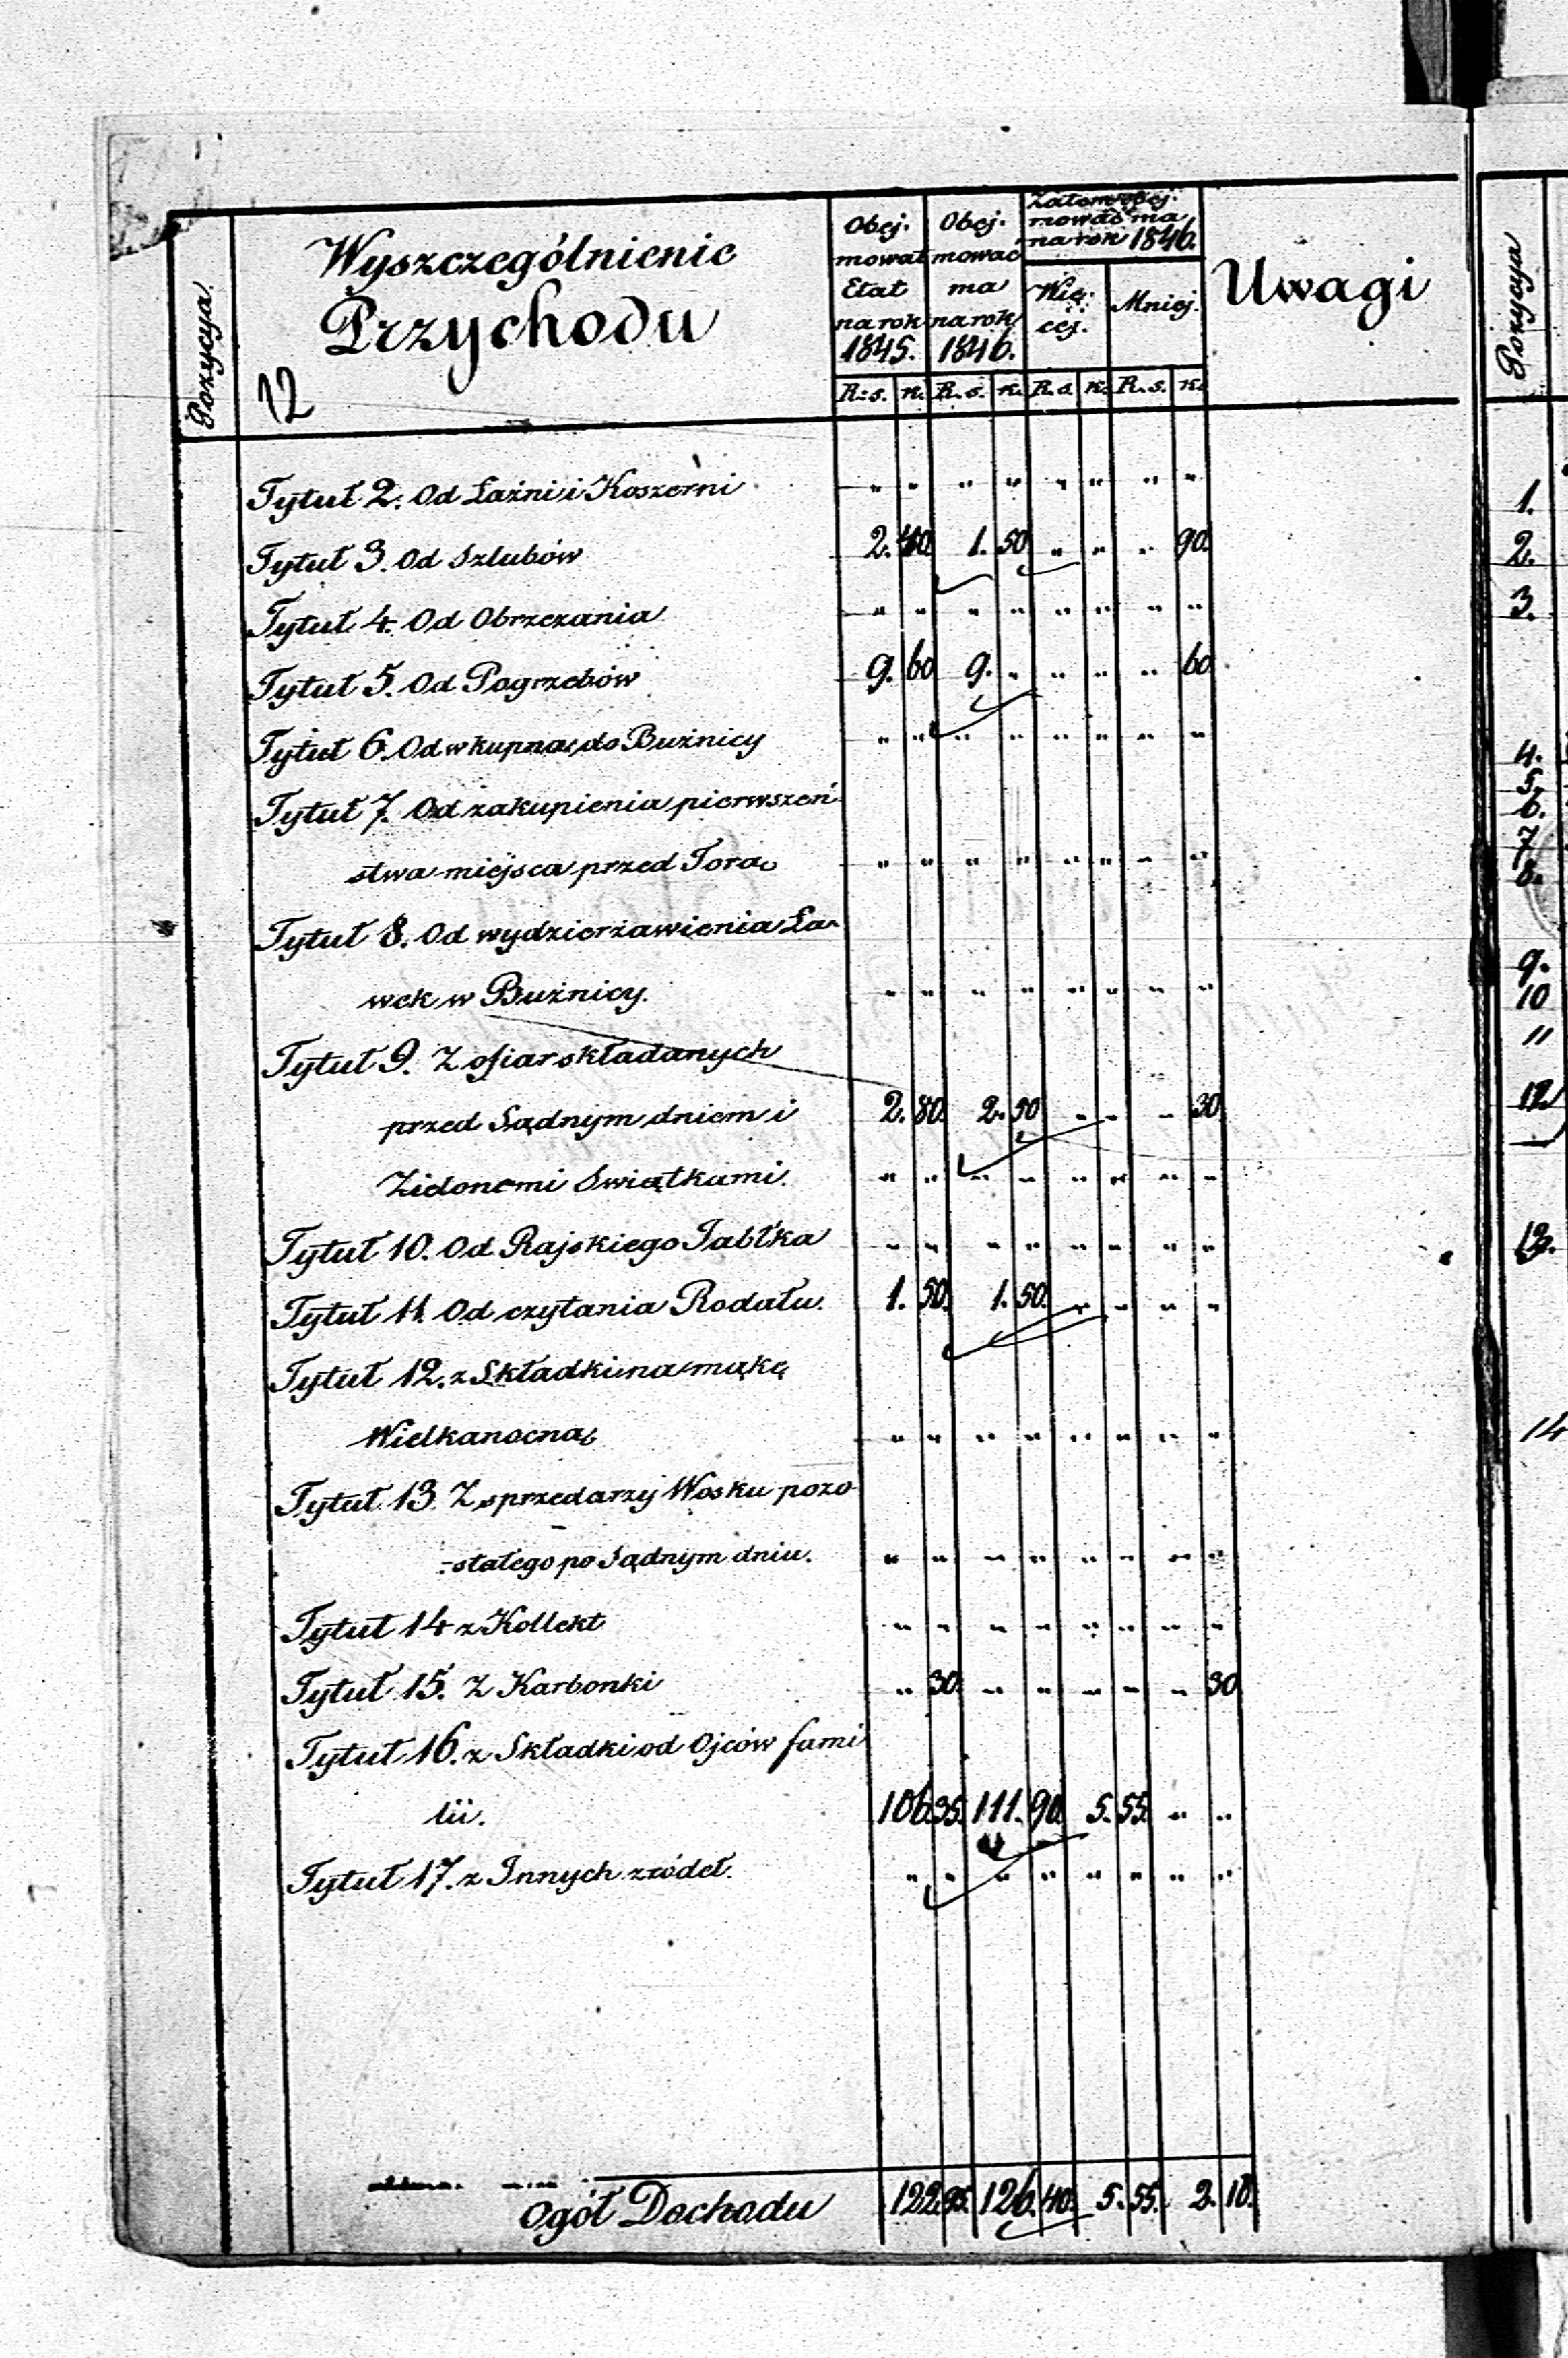 Pozycya.
Wyszczególnienie
Przychodu
12
Obej-
mował
Etat
na rok
1845.
Obej-
mować
ma
na rok
1846.
Zatem obej-
mować ma
na rok 1846.
Wię-
cej.
Mniej.
Uwagi
R: s. k. R. s. k. R. s. k. R. s. k.
Tytuł 2. Od Łaźni i Koszerni " " " " " " " "
Tytuł 3. Od Szlubów 2. 40. 1. 50 " " " 90.
Tytuł 4. Od Obrzezania " " " " " " " "
Tytuł 5. Od Pogrzebów 9. 60 9. " " " " 60
Tytuł 6. Od wkupna do Bużnicy " " " " " " " "
Tytuł 7. Od zakupienia pierwszeń
stwa miejsca przed Torą " " " " " " " "
Tytuł 8. Od wydzierżawienia Ła-
wek w Bużnicy. " " " " " " " "
Tytuł 9. Z ofiar składanych
przed Sądnym dniem i 2. 80. 2. 50 " " " 30.
Zielonemi Swiątkami. " " " " " " " "
Tytuł 10. Od Rajskiego Jabłka " " " " " " " "
Tytuł 11. Od czytania Rodału. 1. 50. 1. 50. " " " "
Tytuł 12. z Składki na mąkę
Wielkanocną " " " " " " " "
Tytuł 13. Z sprzedarzy Wosku pozo
-stałego po Sądnym dniu. " " " " " " " "
Tytuł 14 z Kollekt " " " " " " " "
Tytuł 15. Z Karbonki " 30. " " " " " 30
Tytuł 16. z Składki od Ojców fami
lii. 106. 35. 111. 90. 5. 55. " "
Tytuł 17. z Innych zródeł. " " " " " " " "
Ogół Dochodu 122. 95. 126. 40. 5. 55. 2. 10.
Pozycya
1.
2.
3.
4.
5.
6.
7
8.
9.
10
"
12
13.
14